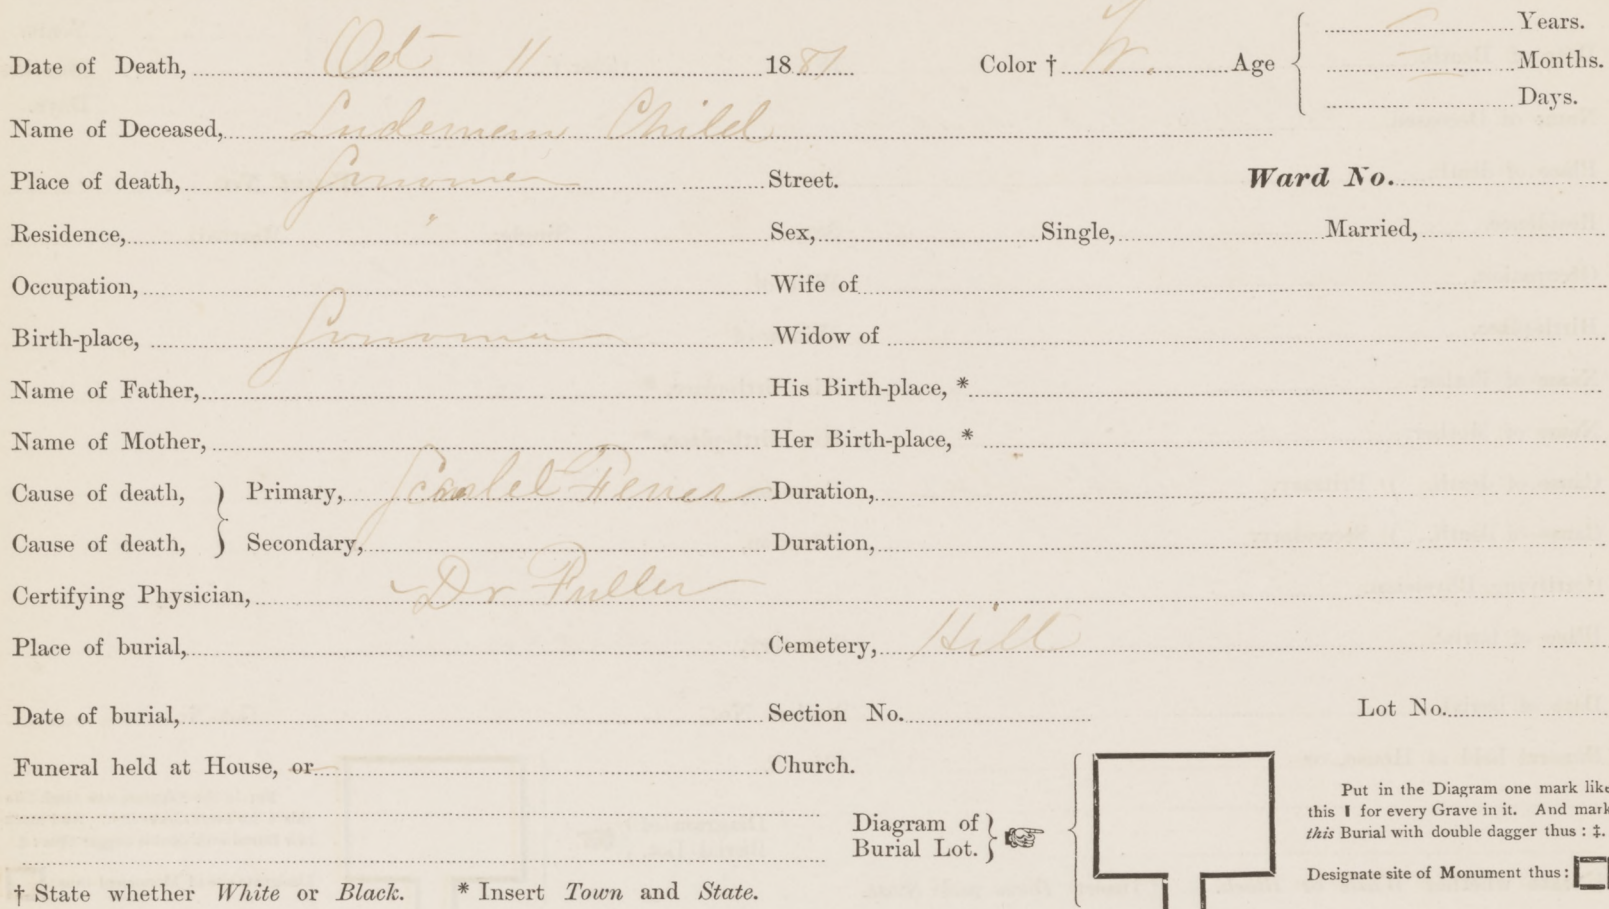 Years.
Date of Death, Oct 11 1881 Color † W. Age Months.
Days.
Name of Deceased, Ludeman Child
Place of death, Sonoma Street. Ward No.
Residence, " Sex, Single, Married,
Occupation, Wife of
Birth-place, Sonoma Widow of
Name of Father, His Birth-place, *
Name of Mother, Her Birth-place, *
Cause of death, } Primary, Scarlet Fever Duration,
Cause of death, } Secondary, Duration,
Certifying Physician, Dr Fuller
Place of burial, Cemetery, Hill
Date of burial, Section No. Lot No.
Funeral held at House, or Church.
Diagram of
Burial Lot. }
Put in the Diagram one mark like
this ❙ for every Grave in it. And mark
this Burial with double dagger thus : ‡.
Designate site of Monument thus :
† State whether White or Black. * Insert Town and State.